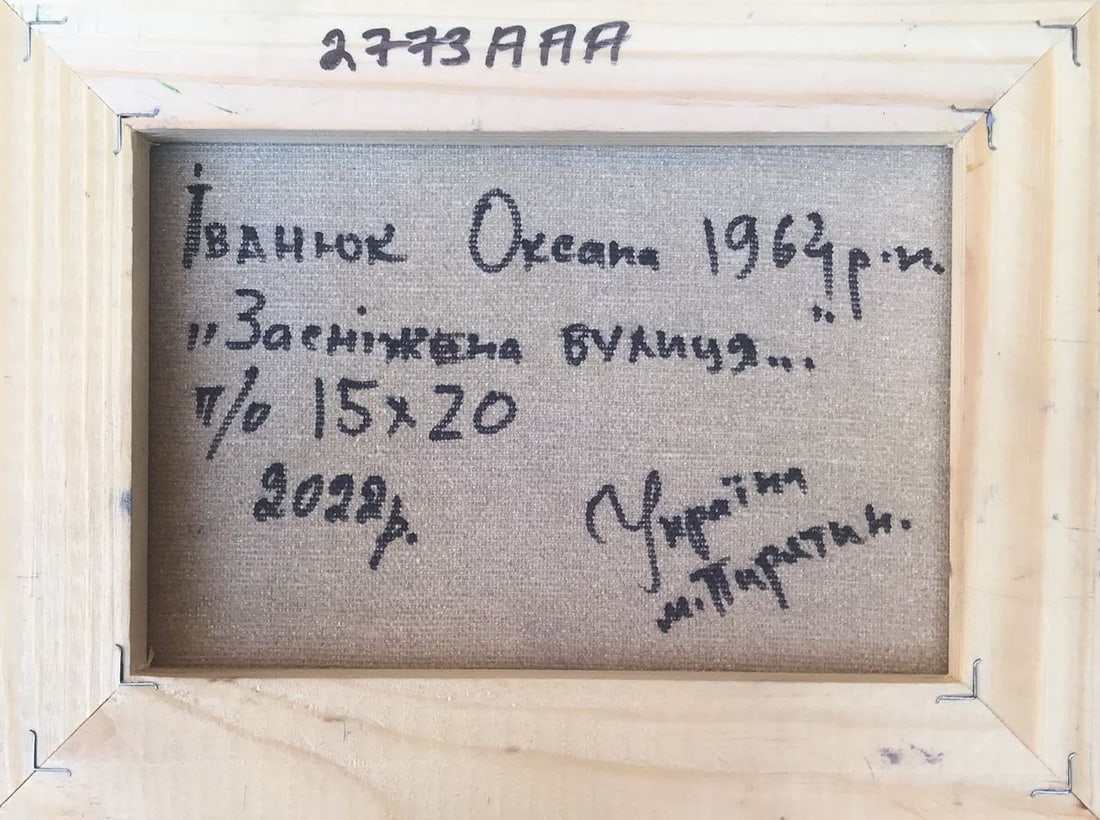 2773ААА
Іванюк Оксана 1964 р.н.
„Засніжена вулиця...”
п/о 15х20
2022р.
Україна
м. Пирятин.